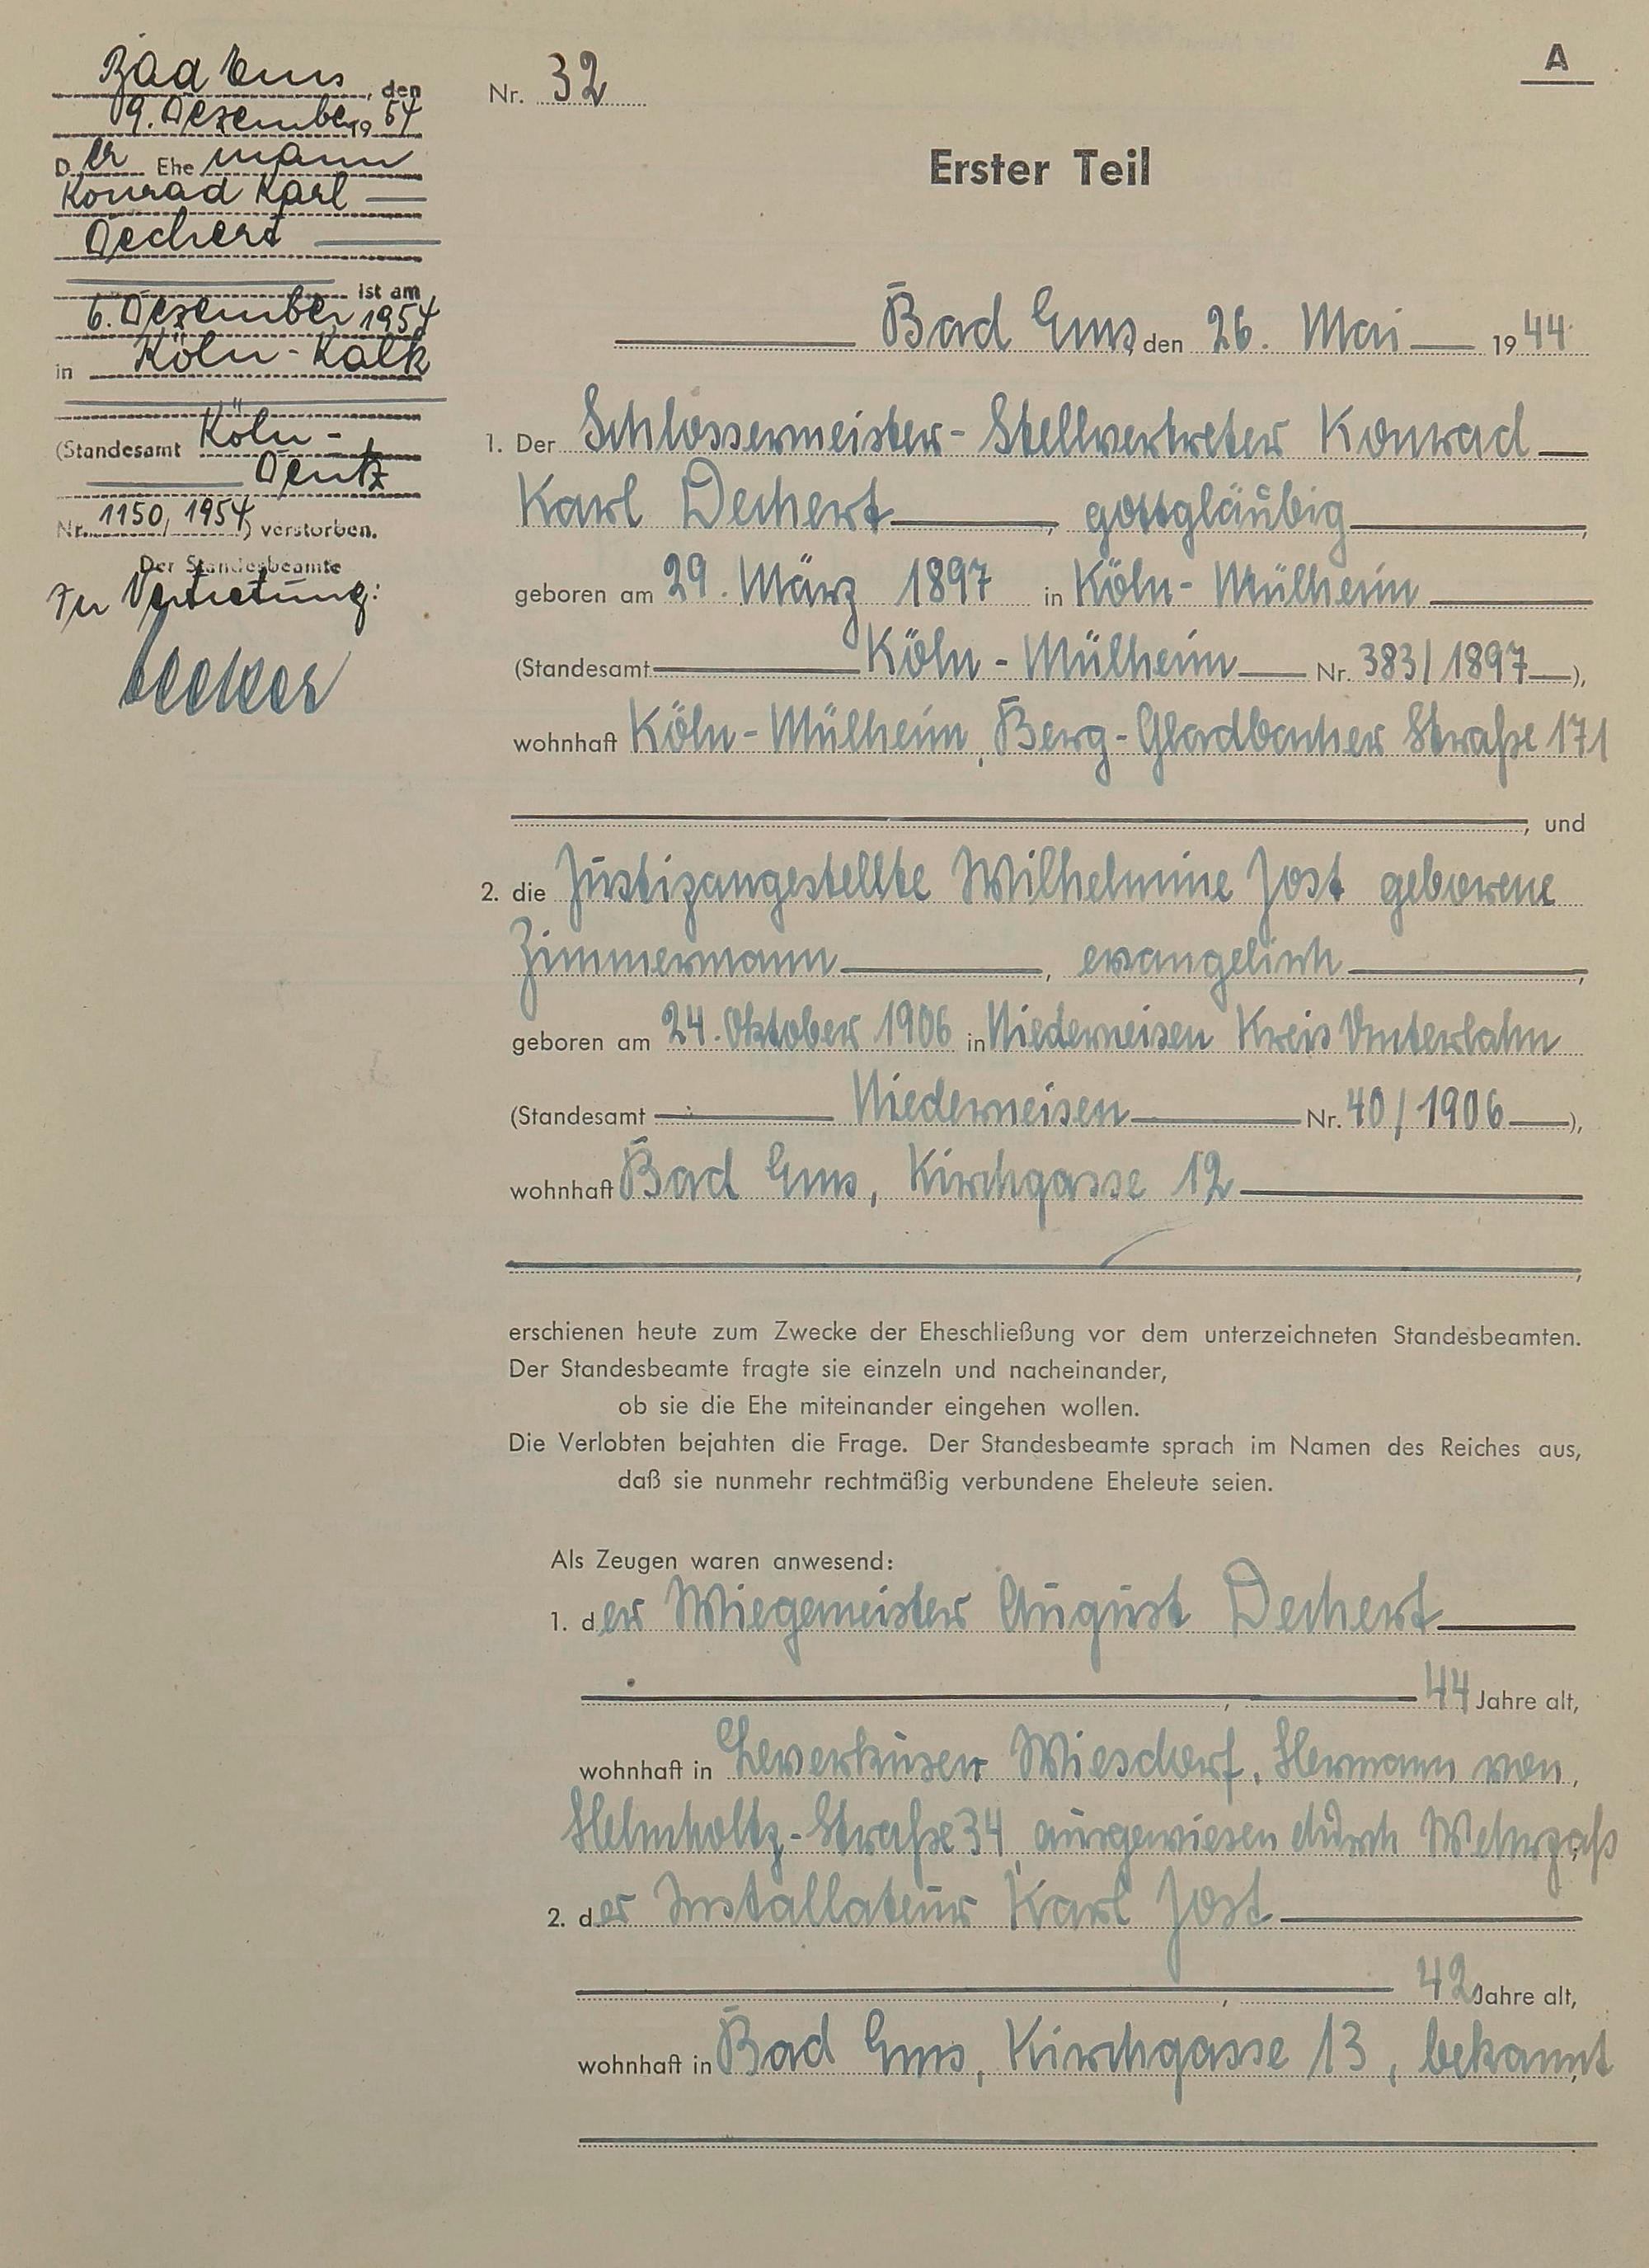 Bad Ems, den
9. Dezember 1954
Der Ehemann
Konrad Karl
Dechert
ist am
6. Dezember 1954
in Köln-Kalk
(Standesamt Köln-
Deutz
Nr. 1150/1954) verstorben.
Der Standesbeamte
In Vertretung:
A
Nr. 32
Erster Teil
Bad Ems, den 26. Mai 1944
1. Der Schlossermeister-Stellvertreter Konrad
Karl Dechert, gottgläubig,
geboren am 29. März 1897 in Köln-Mülheim
(Standesamt Köln-Mülheim Nr. 383/1897),
wohnhaft Köln-Mülheim, Berg-Gladbacher Straße 171
, und
2. die Justizangestellte Wilhelmine Jost geborene
Zimmermann, evangelisch,
geboren am 24. Oktober 1906 in Niederneisen Kreis Unterlahn
(Standesamt Niederneisen Nr. 40/1906),
wohnhaft Bad Ems, Kirchgasse 12
,
erschienen heute zum Zwecke der Eheschließung vor dem unterzeichneten Standesbeamten.
Der Standesbeamte fragte sie einzeln und nacheinander,
ob sie die Ehe miteinander eingehen wollen.
Die Verlobten bejahten die Frage. Der Standesbeamte sprach im Namen des Reiches aus,
daß sie nunmehr rechtmäßig verbundene Eheleute seien.
Als Zeugen waren anwesend:
1. der Wiegemeister August Dechert
, 44 Jahre alt,
wohnhaft in Leverkusen Wiesdorf, Hermann von,
Helmholtz-Straße 34, ausgewiesen durch Wehrpaß
2. der Installateur Karl Jost
, 42 Jahre alt,
wohnhaft in Bad Ems, Kirchgasse 13, bekannt